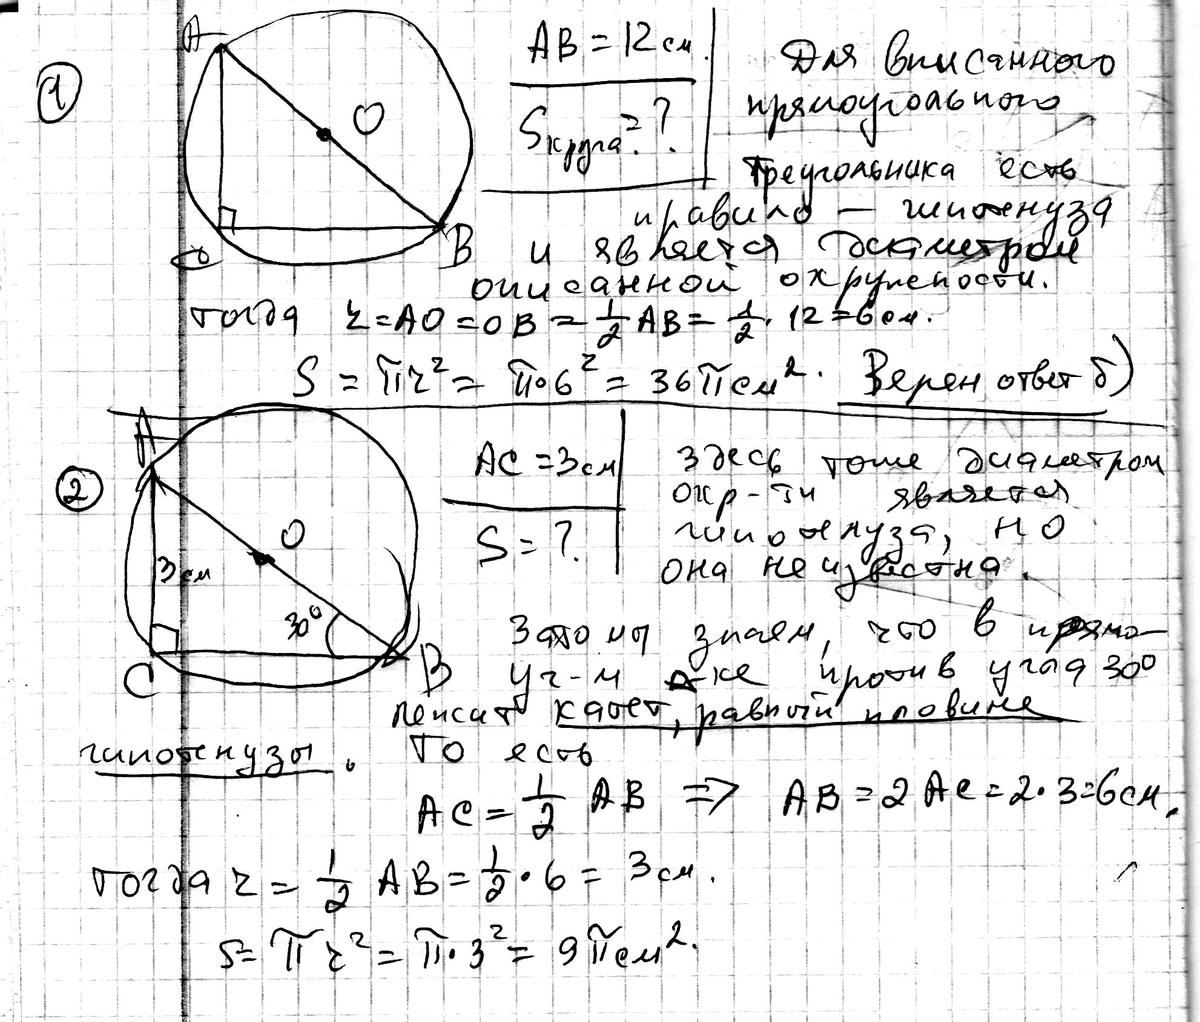 1
A
O
C
B
AB = 12 см.
Sкруга = ?
Для вписанного
прямоугольного
треугольника есть
правило — гипотенуза
и является диаметром
описанной окружности.
тогда r = AO = OB = 1/2 AB = 1/2 · 12 = 6 см.
S = πr² = π·6² = 36π см². Верен ответ б)
2
A
O
3 см
30°
C
B
AC = 3 см
S = ?
Здесь тоже диаметром
окр-ти является
гипотенуза, но
она неизвестна.
Зато мы знаем, что в прямо-
уг-м Δ-ке против угла 30°
лежит катет, равный половине
гипотенузы. То есть
AC = 1/2 AB => AB = 2AC = 2·3 = 6 см.
тогда r = 1/2 AB = 1/2 · 6 = 3 см.
S = πr² = π·3² = 9π см².